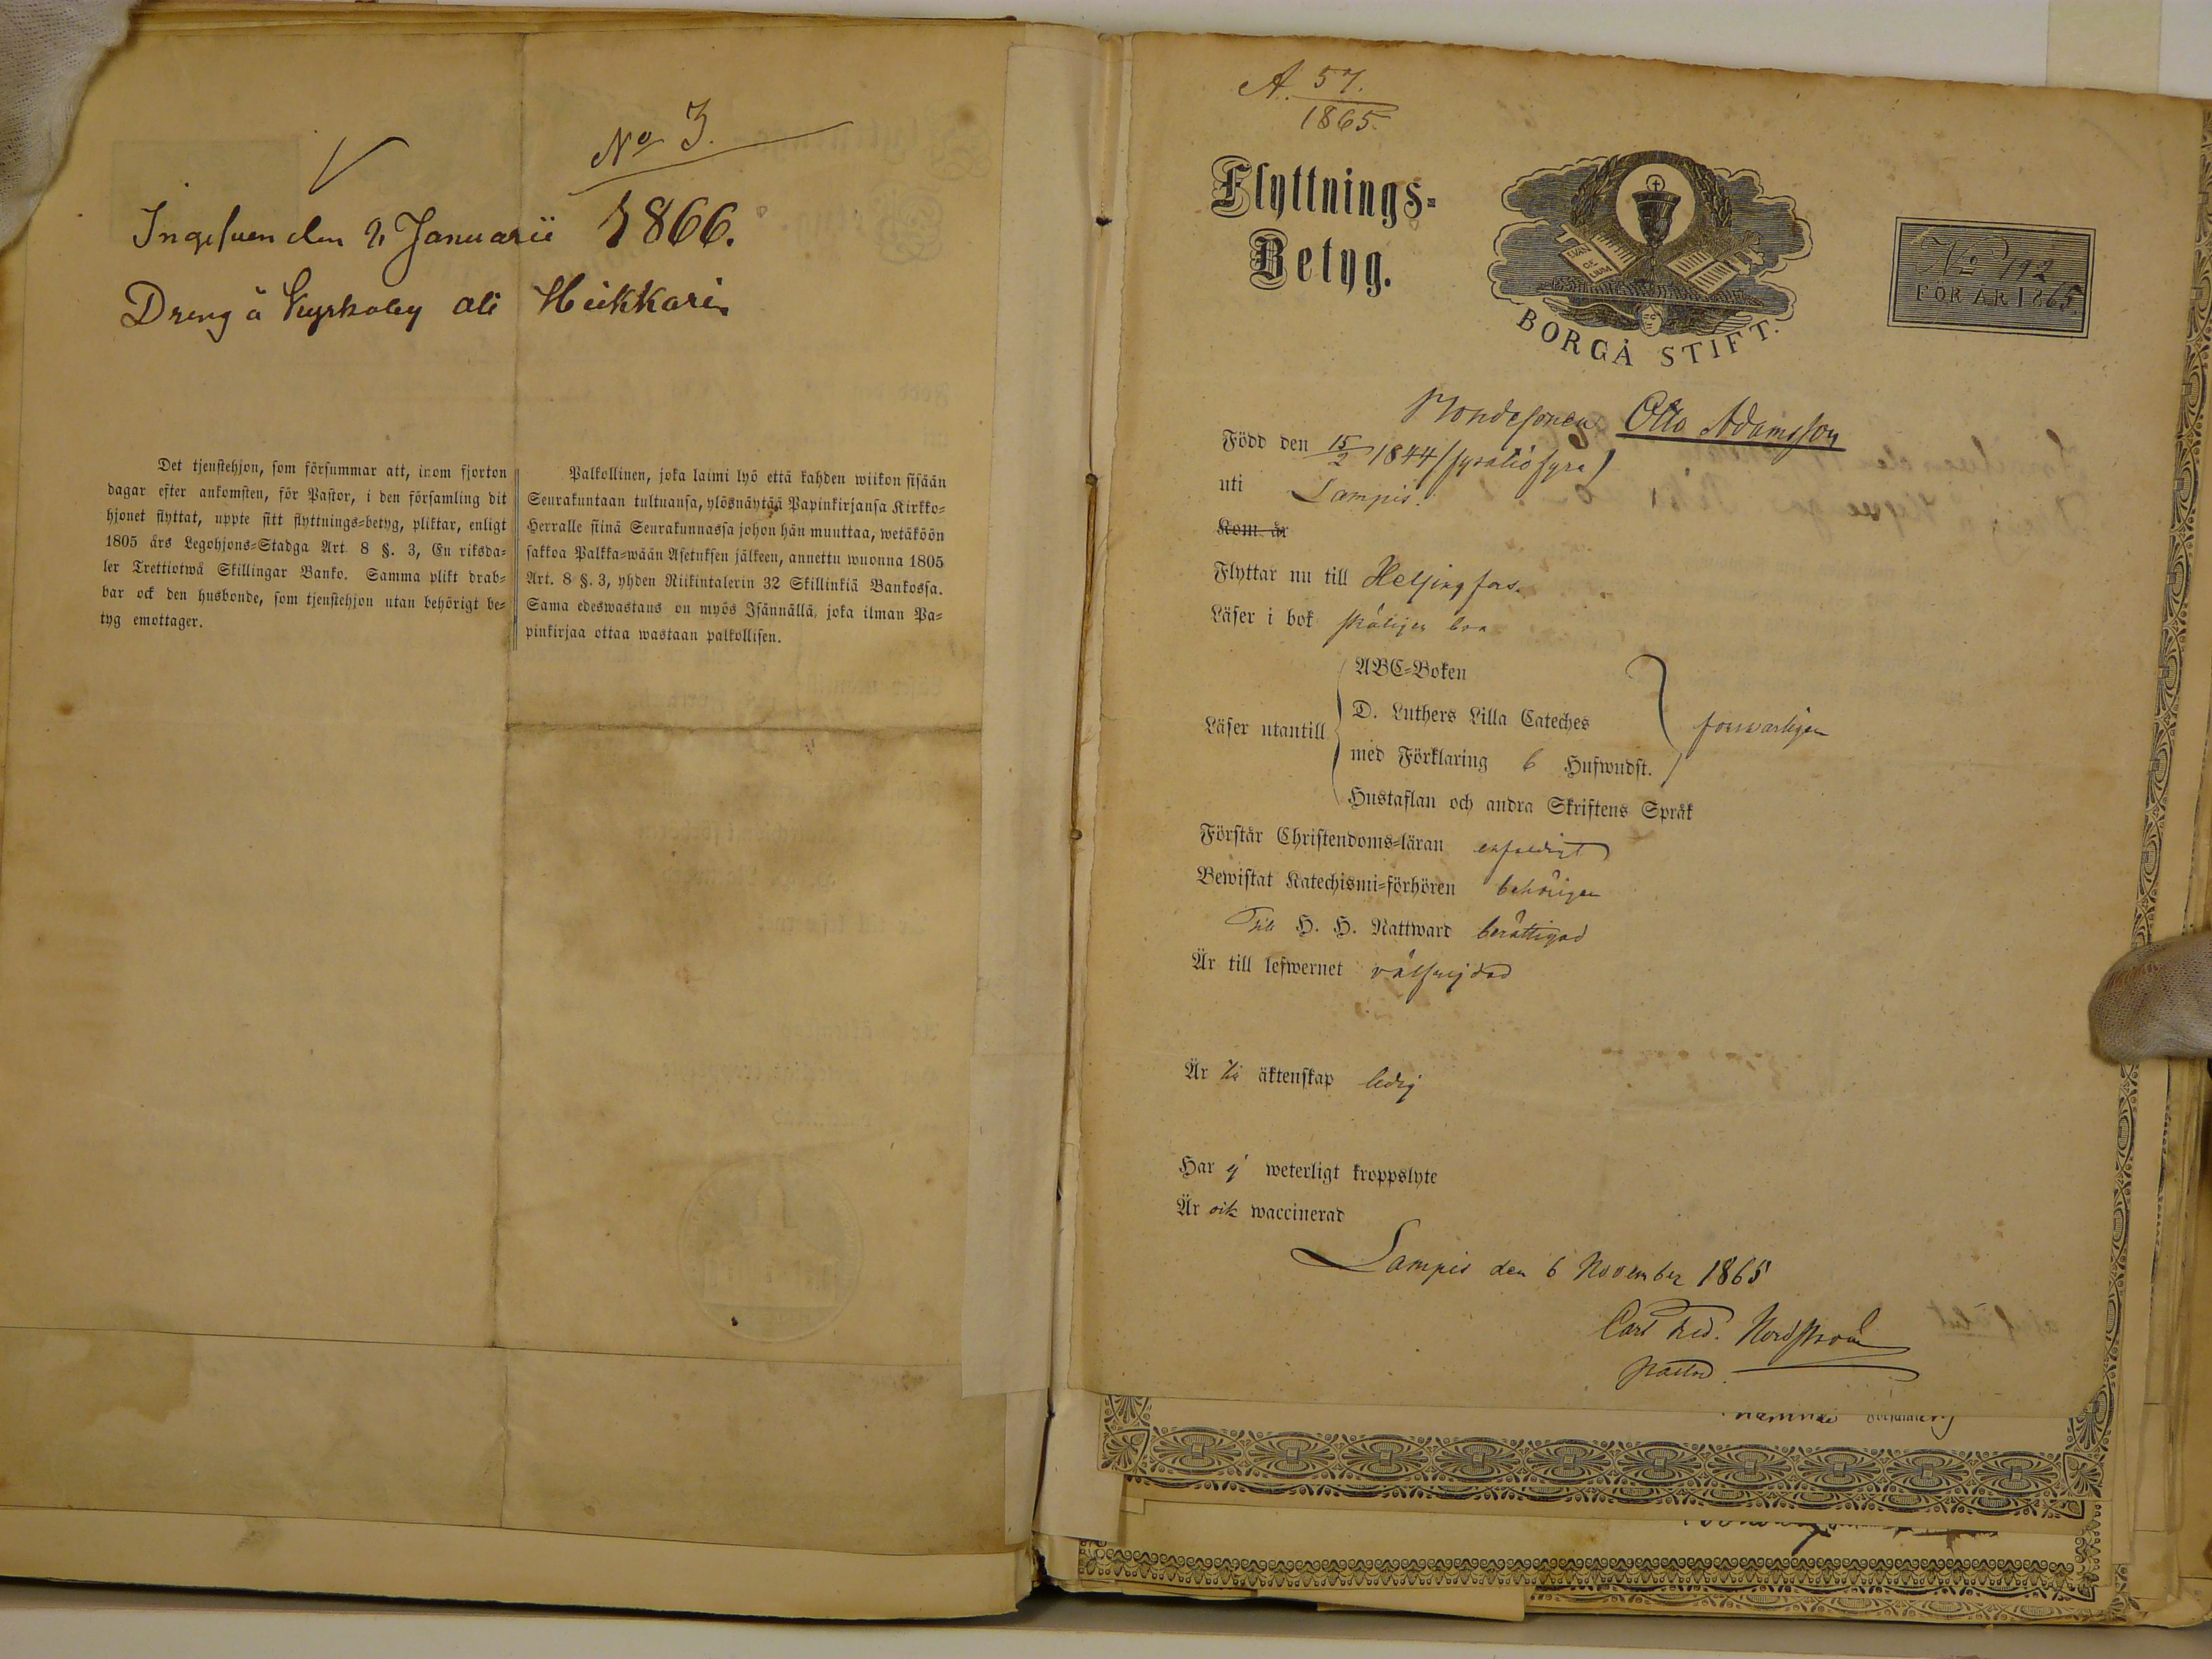 No 3.
Ingifven den 2 Januarii 1866.
Dreng å Kyrkoby Ali Heikkari
Det tjenstehjon, som försummar att, inom fjorton
dagar efter ankomsten, för Pastor, i den församling dit
hjonet flyttat, uppte sitt flyttnings-betyg, pliktar, enligt
1805 års Legohjons-Stadga Art. 8 §. 3, En riksda-
ler Trettiotwå Skillingar Banko. Samma plikt drab-
bar ock den husbonde, som tjenstehjon utan behörigt be-
tyg emottager.
Palkollinen, joka laimi lyö että kahden wiikon sisään
Seurakuntaan tultuansa, ylösnäytää Papinkirjansa Kirkko-
Herralle siinä Seurakunnassa johon hän muuttaa, wetäköön
sakkoa Palkka-wään Asetuksen jälkeen, annettu wuonna 1805
Art. 8 §. 3, yhden Riikintalerin 32 Skillinkiä Bankossa.
Sama edeswastaus on myös Isännällä, joka ilman Pa-
pinkirjaa ottaa wastaan palkollisen.
A. 57.
1865.
Flyttnings-
Betyg.
EVAN
GE
LIUM
BORGÅ STIFT.
No 192
FÖR ÅR 1865.
Bondesonen Otto Adamsson
Född den 15/2 1844 (fyratio fyra)
uti Lampis.
Kom år
Flyttar nu till Helsingfors.
Läser i bok skäligen bra
Läser utantill
ABC-Boken
D. Luthers Lilla Cateches
med Förklaring 6 Hufwudst.
Hustaflan och andra Skriftens Språk
försvarligen
Förstår Christendoms-läran enfaldigt
Bewistat Katechismi-förhören behörigen
Till H. H. Nattward berättigad
Är till lefwernet välfrejdad
Är till äktenskap ledig
Har ej weterligt kroppslyte
Är ock waccinerad
Lampis den 6 November 1865
Carl Fred. Nordström
Pastor.